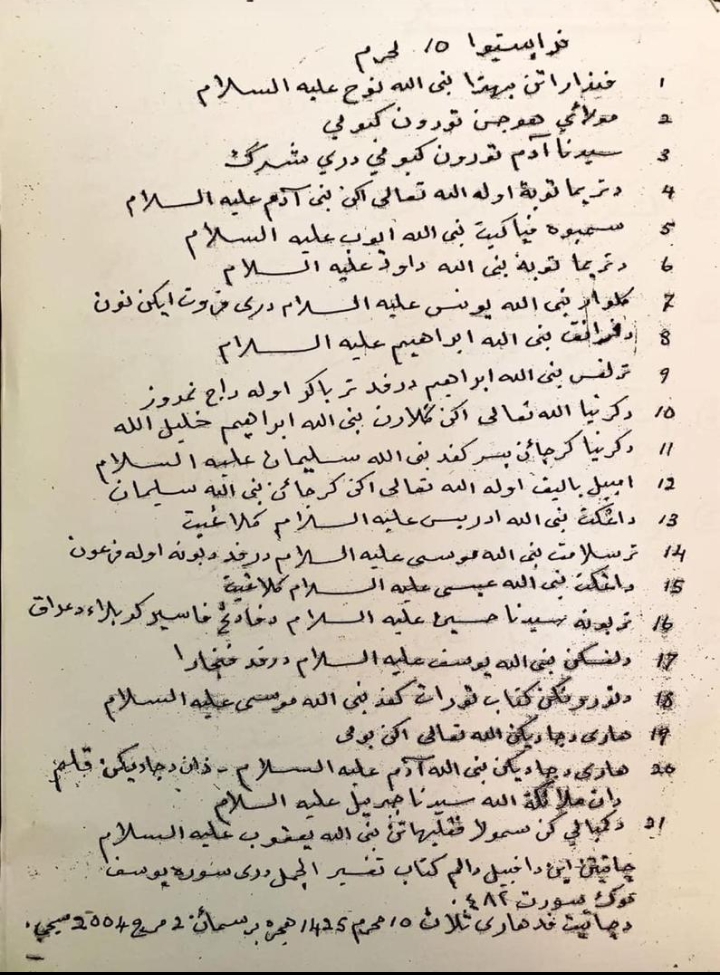 فرايستيوا 10 محرم
1 فندارتن بهترا نبى الله نوح عليه السلام
2 مولائي هوجن تورون كبومي
3 سيدنا آدم تورون كبومي دري شرك
4 دتريما توبة اوله الله تعالى اكن نبى آدم عليه السلام
5 سمبوه فپاكيت نبى الله ايوب عليه السلام
6 دتريما توبة نبى الله داود عليه السلام
7 كلوار نبى الله يونس عليه السلام درى فروت ايكن نون
8 دفرانقكن نبى الله ابراهيم عليه السلام
9 ترلفس نبى الله ابراهيم درفد تر باكر اوله راج نمروز
10 دكرنيا الله تعالى اكن كلارن نبى الله ابراهيم خليل الله
11 دكرنيا كرجائن بسر كفد نبى الله سليمان عليه السلام
12 امبيل باليق اوله الله تعالى اكن كرجائن نبى الله سليمان
13 داڠكت نبى الله ادريس عليه السلام كلاڠيت
14 ترسلامت نبى الله موسى عليه السلام درفد دبونه اوله فرعون
15 داڠكت نبى الله عيسى عليه السلام كلاڠيت
16 تربونه سيدنا حسين عليه السلام دفادڠ فاسير كربلاء دعراق
17 دلفسكن نبى الله يوسف عليه السلام درفد فنجارا
18 دتورونكن كتاب تورات كفد نبى الله موسى عليه السلام
19 هارى دجاديكن الله تعالى اكن بومى
20 هارى دجاديكن نبى الله آدم عليه السلام - دان دجاديكن قلم
دان ملائكة الله سيدنا جبريل عليه السلام
21 دكمبالي كن سمولا فڠليهاتن نبى الله يعقوب عليه السلام
چاتيتن اين دامبيل دالم كتاب تفسير الجمل درى سوره يوسف
موك سورت ٤٨٢.
دچاتيت فد هارى ثلاث 10 محرم 1425 هجرة برسمائن 2 مرچ 2004 مسيحي.